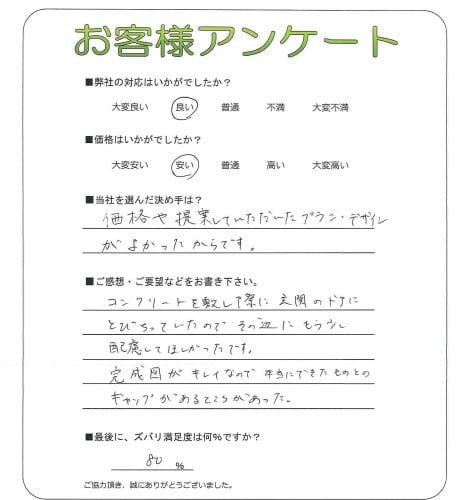 お客様アンケート
■弊社の対応はいかがでしたか？
大変良い 良い 普通 不満 大変不満
■価格はいかがでしたか？
大変安い 安い 普通 高い 大変高い
■当社を選んだ決め手は？
価格や提案していただいたプラン・デザイン
がよかったからです。
■ご感想・ご要望などをお書き下さい。
コンクリートを敷した際に玄関のドアに
とびちっていたので その辺にもう少し
配慮してほしかったです。
完成図がキレイなので本当にできたものとの
ギャップがあるところがあった。
■最後に、ズバリ満足度は何%ですか？
80 %
ご協力頂き、誠にありがとうございました。